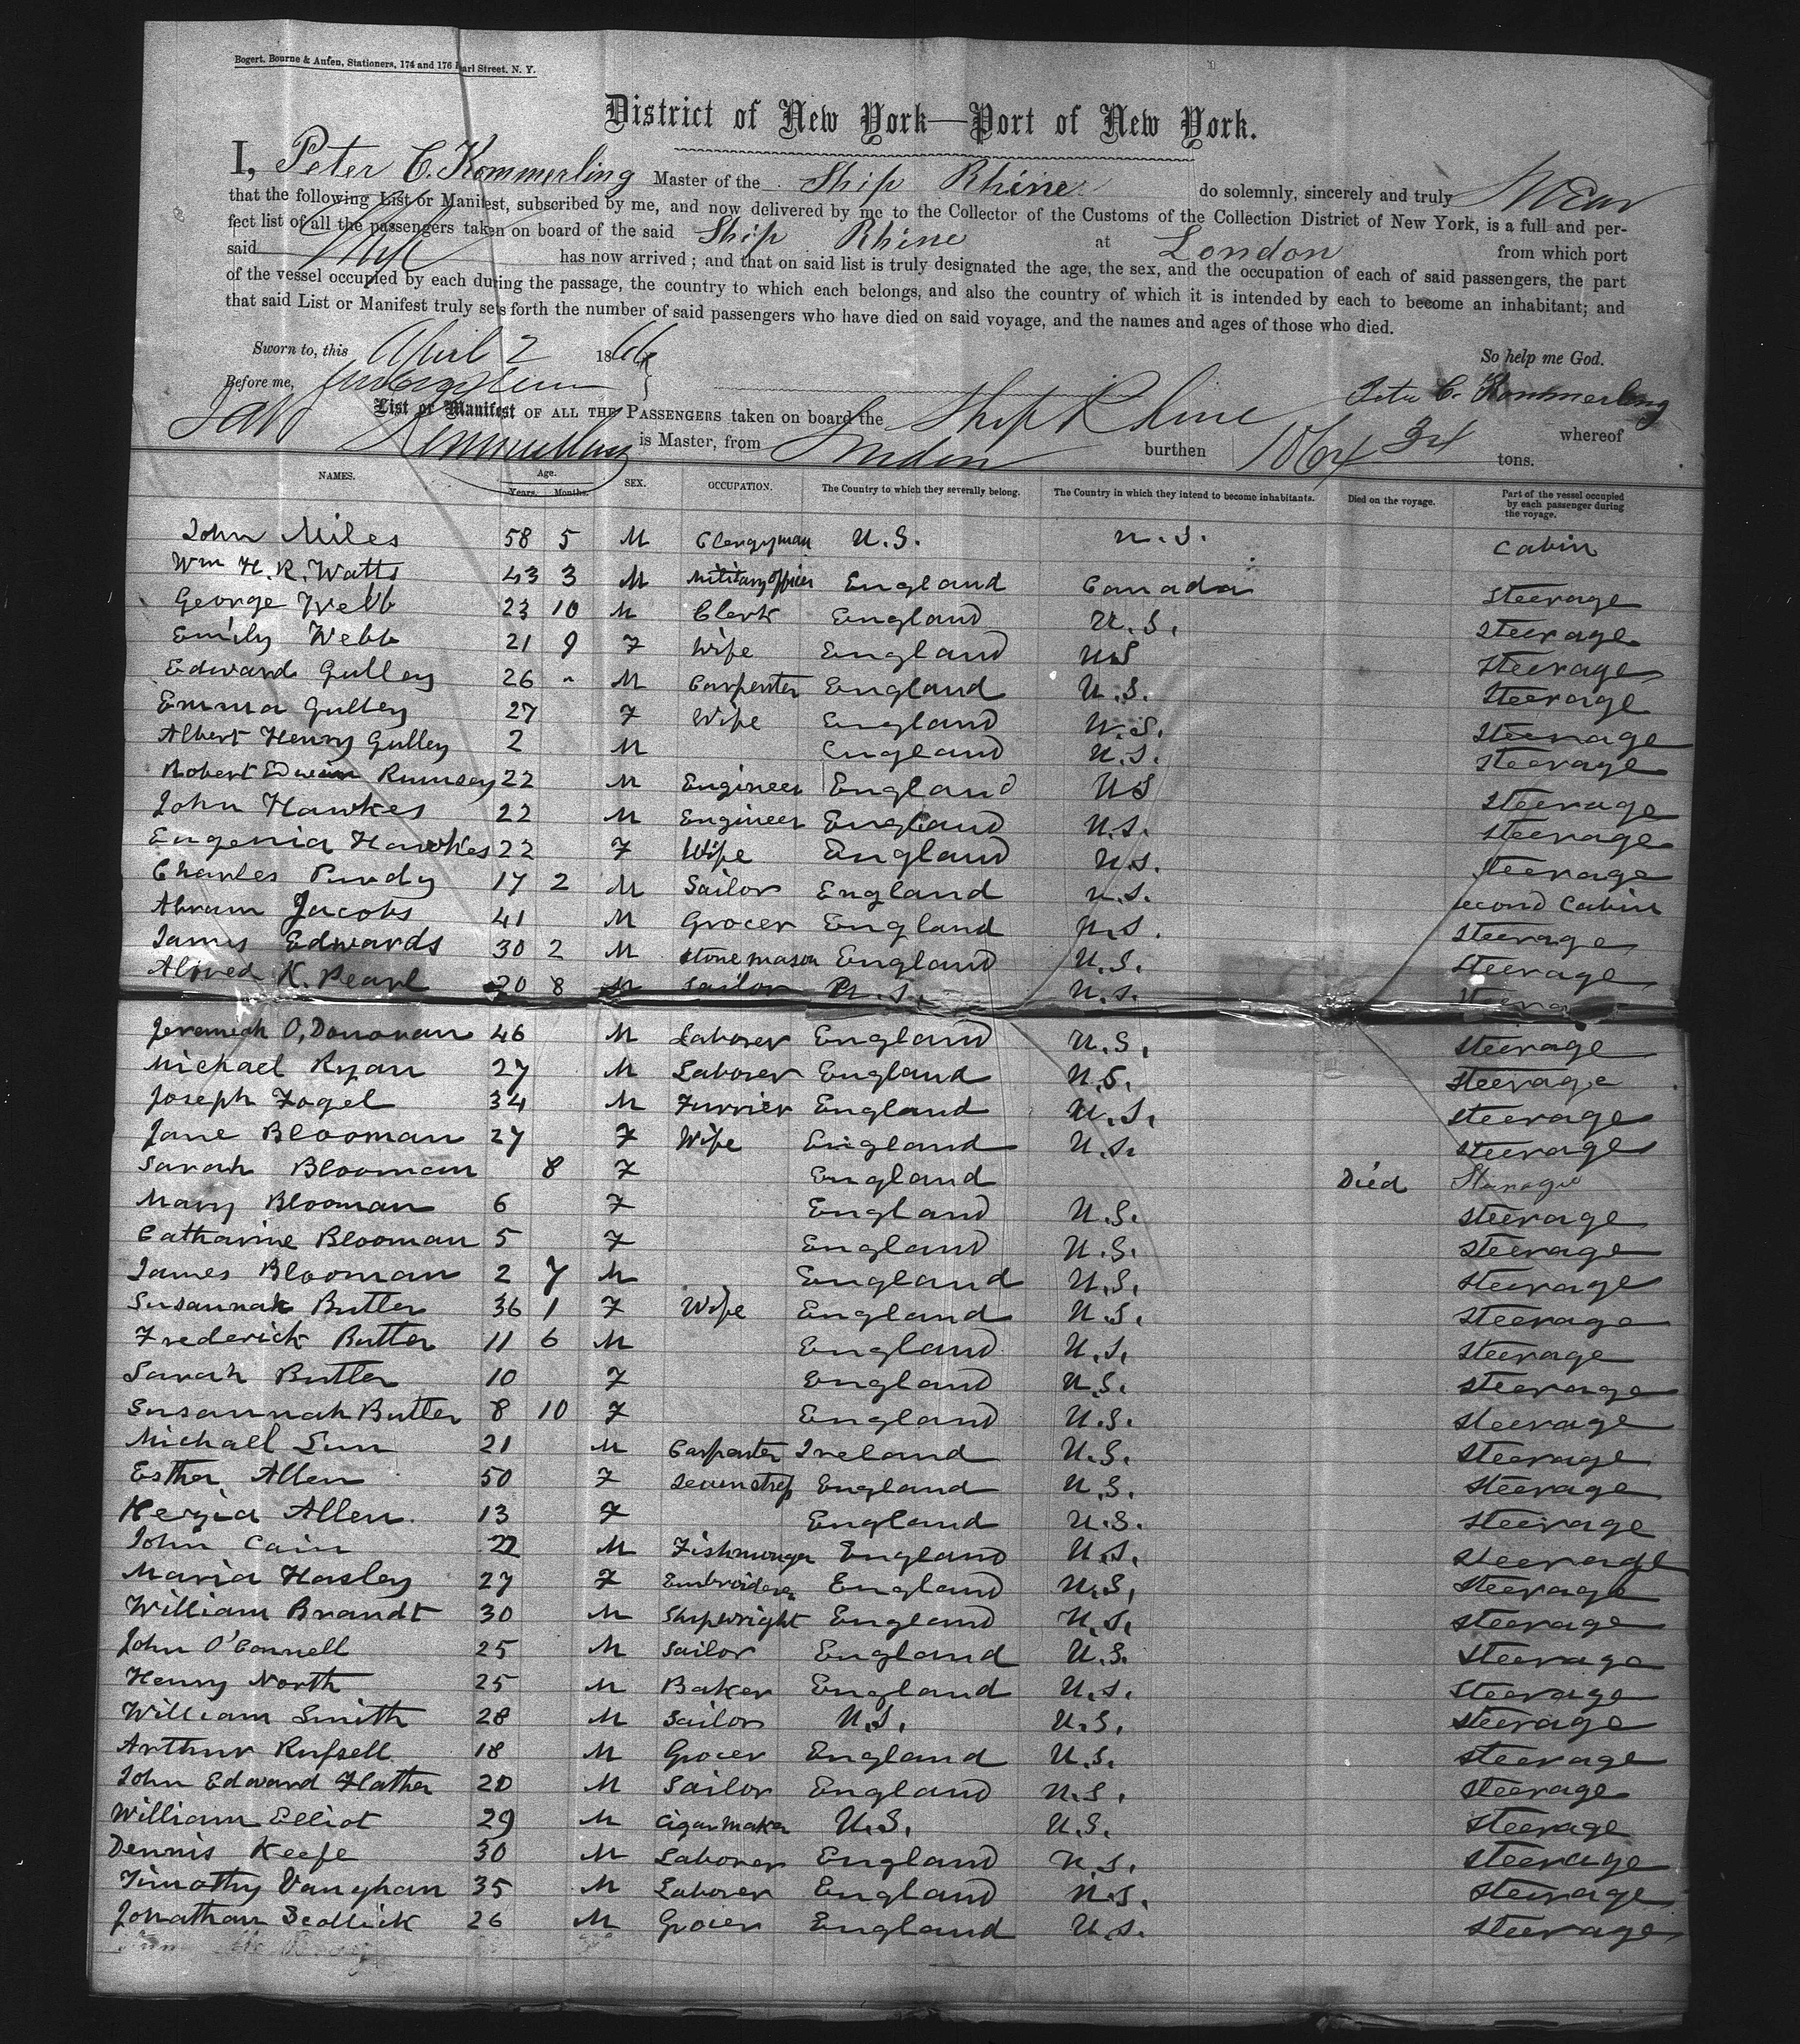 Bogert, Bourne & Auten, Stationers, 174 and 176 Pearl Street, N. Y.
District of New York—Port of New York.
I, Peter C. Kommerling Master of the Ship Rhine do solemnly, sincerely and truly swear
that the following List or Manifest, subscribed by me, and now delivered by me to the Collector of the Customs of the Collection District of New York, is a full and per-
fect list of all the passengers taken on board of the said Ship Rhine at London from which port
said Ship has now arrived; and that on said list is truly designated the age, the sex, and the occupation of each of said passengers, the part
of the vessel occupied by each during the passage, the country to which each belongs, and also the country of which it is intended by each to become an inhabitant; and
that said List or Manifest truly sets forth the number of said passengers who have died on said voyage, and the names and ages of those who died.
Sworn to, this April 2 1866 So help me God.
Before me, Peter C. Kommerling
List or Manifest OF ALL THE PASSENGERS taken on board the Ship Rhine whereof
Kommerling is Master, from London burthen 1064 34 tons.
NAMES. Age. Years. Months. SEX. OCCUPATION. The Country to which they severally belong. The Country in which they intend to become inhabitants. Died on the voyage. Part of the vessel occupied by each passenger during the voyage.
John Miles 58 5 M Clergyman U.S. U.S. Cabin
Wm H. R. Watts 43 3 M Military officer England Canada Steerage
George Webb 23 10 M Clerk England U.S. Steerage
Emily Webb 21 9 F Wife England US Steerage
Edward Gulley 26 - M Carpenter England U.S. Steerage
Emma Gulley 27 F Wife England U.S. Steerage
Albert Henry Gulley 2 M England U.S. Steerage
Robert Edwin Rumsey 22 M Engineer England US Steerage
John Hawkes 22 M Engineer England U.S. Steerage
Eugenia Hawkes 22 F Wife England U.S. Steerage
Charles Purdy 17 2 M Sailor England U.S. econd Cabin
Abram Jacobs 41 M Grocer England U.S. Steerage
James Edwards 30 2 M Stone mason England U.S. Steerage
Alfred K. Pearl 20 8 M Sailor U.S. U.S.
Jeremiah O,Donovan 46 M Laborer England U.S. Steerage
Michael Ryan 27 M Laborer England U.S. Steerage
Joseph Fogel 34 M Furrier England U.S. Steerage
Jane Blooman 27 F Wife England U.S. Steerage
Sarah Blooman 8 F England Died Steerage
Mary Blooman 6 F England U.S. Steerage
Catharine Blooman 5 F England U.S. Steerage
James Blooman 2 7 M England U.S. Steerage
Susannah Butler 36 1 F Wife England U.S. Steerage
Frederick Butler 11 6 M England U.S. Steerage
Sarah Butler 10 F England U.S. Steerage
Susannah Butler 8 10 F England U.S. Steerage
Michall Lunn 21 M Carpenter Ireland U.S. Steerage
Esther Allen 50 F Seamstress England U.S. Steerage
Kezia Allen 13 F England U.S. Steerage
John Cain 22 M Fishmonger England U.S. Steerage
Maria Hasley 27 F Embroiderer England U.S. Steerage
William Brandt 30 M Shipwright England U.S. Steerage
John O'Connell 25 M Sailor England U.S. Steerage
Henry North 25 M Baker England U.S. Steerage
William Smith 28 M Sailor U.S. U.S. Steerage
Arthur Russell 18 M Grocer England U.S. Steerage
John Edward Flather 20 M Sailor England U.S. Steerage
William Elliot 29 M Cigar maker U.S. U.S. Steerage
Dennis Keefe 30 M Laborer England U.S. Steerage
Timothy Vaughan 35 M Laborer England U.S. Steerage
Jonathan Sedlick 26 M Grocer England U.S. Steerage